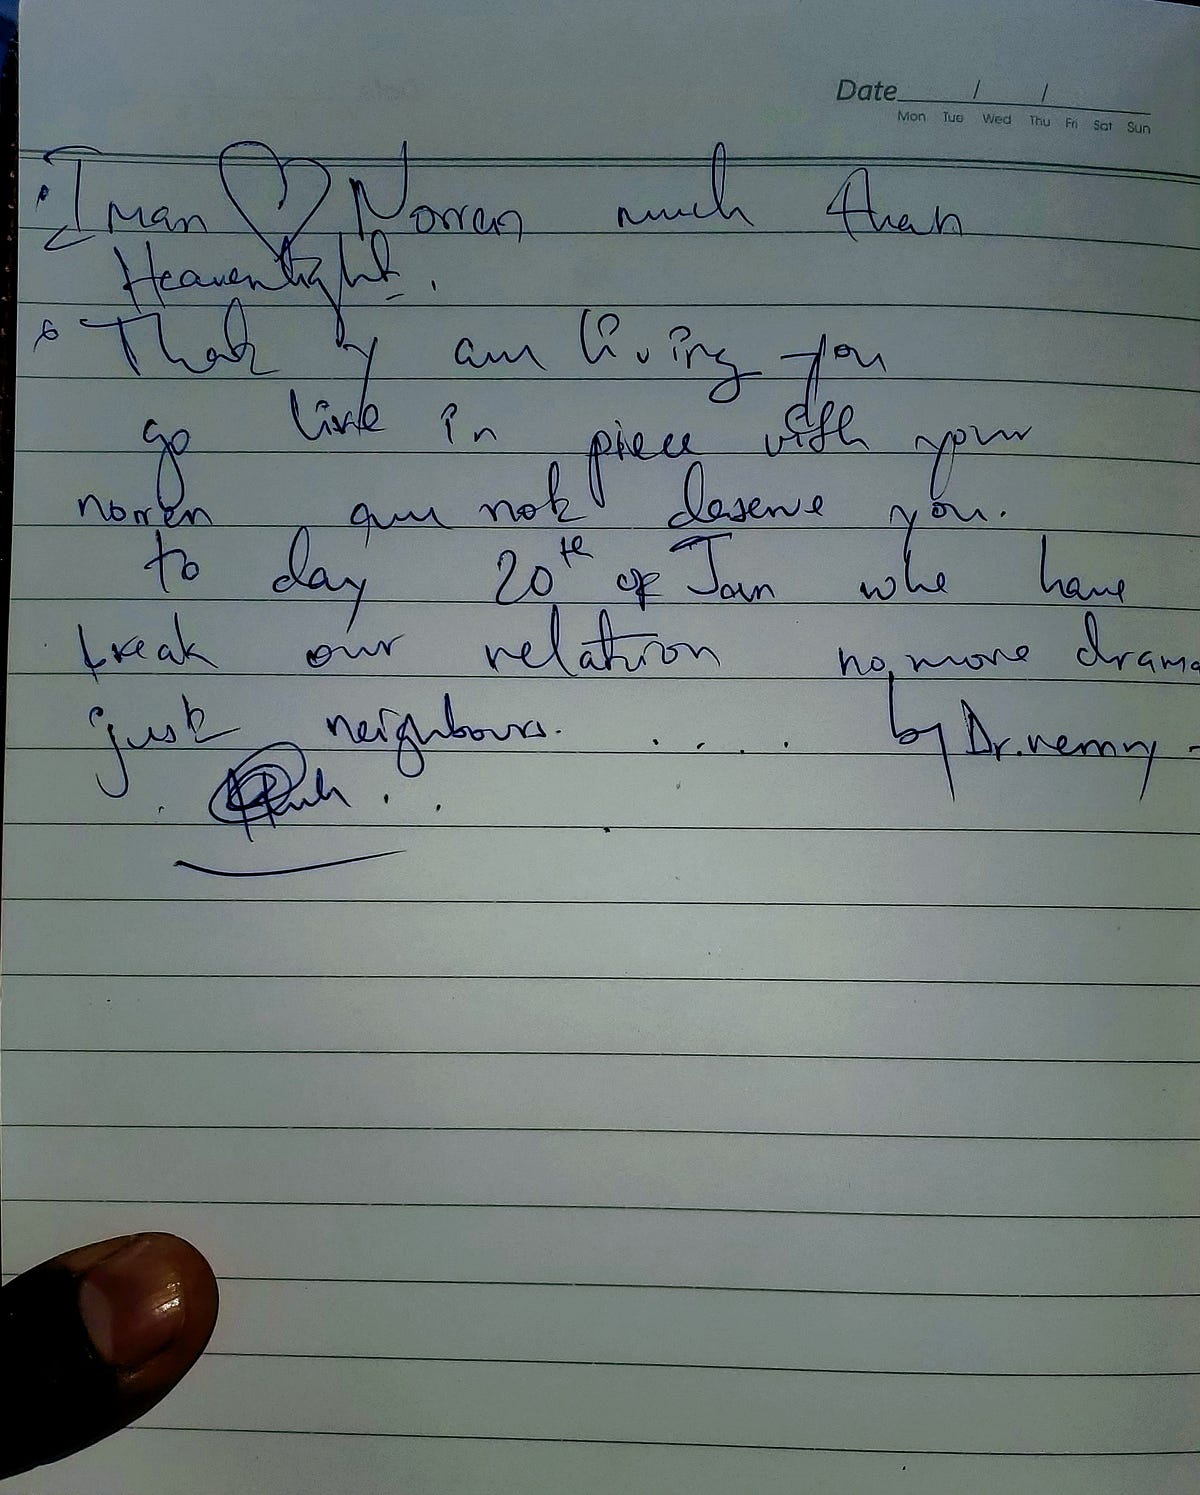 Date / /
Mon Tue Wed Thu Fri Sat Sun
Iman Norren much than
Heavenlight.
That y am living you
go live in piece with your
norren am not deserve you.
to day 20th of Jan whe have
break our relation no more drama
just neighbours. .... by Dr.remmy -